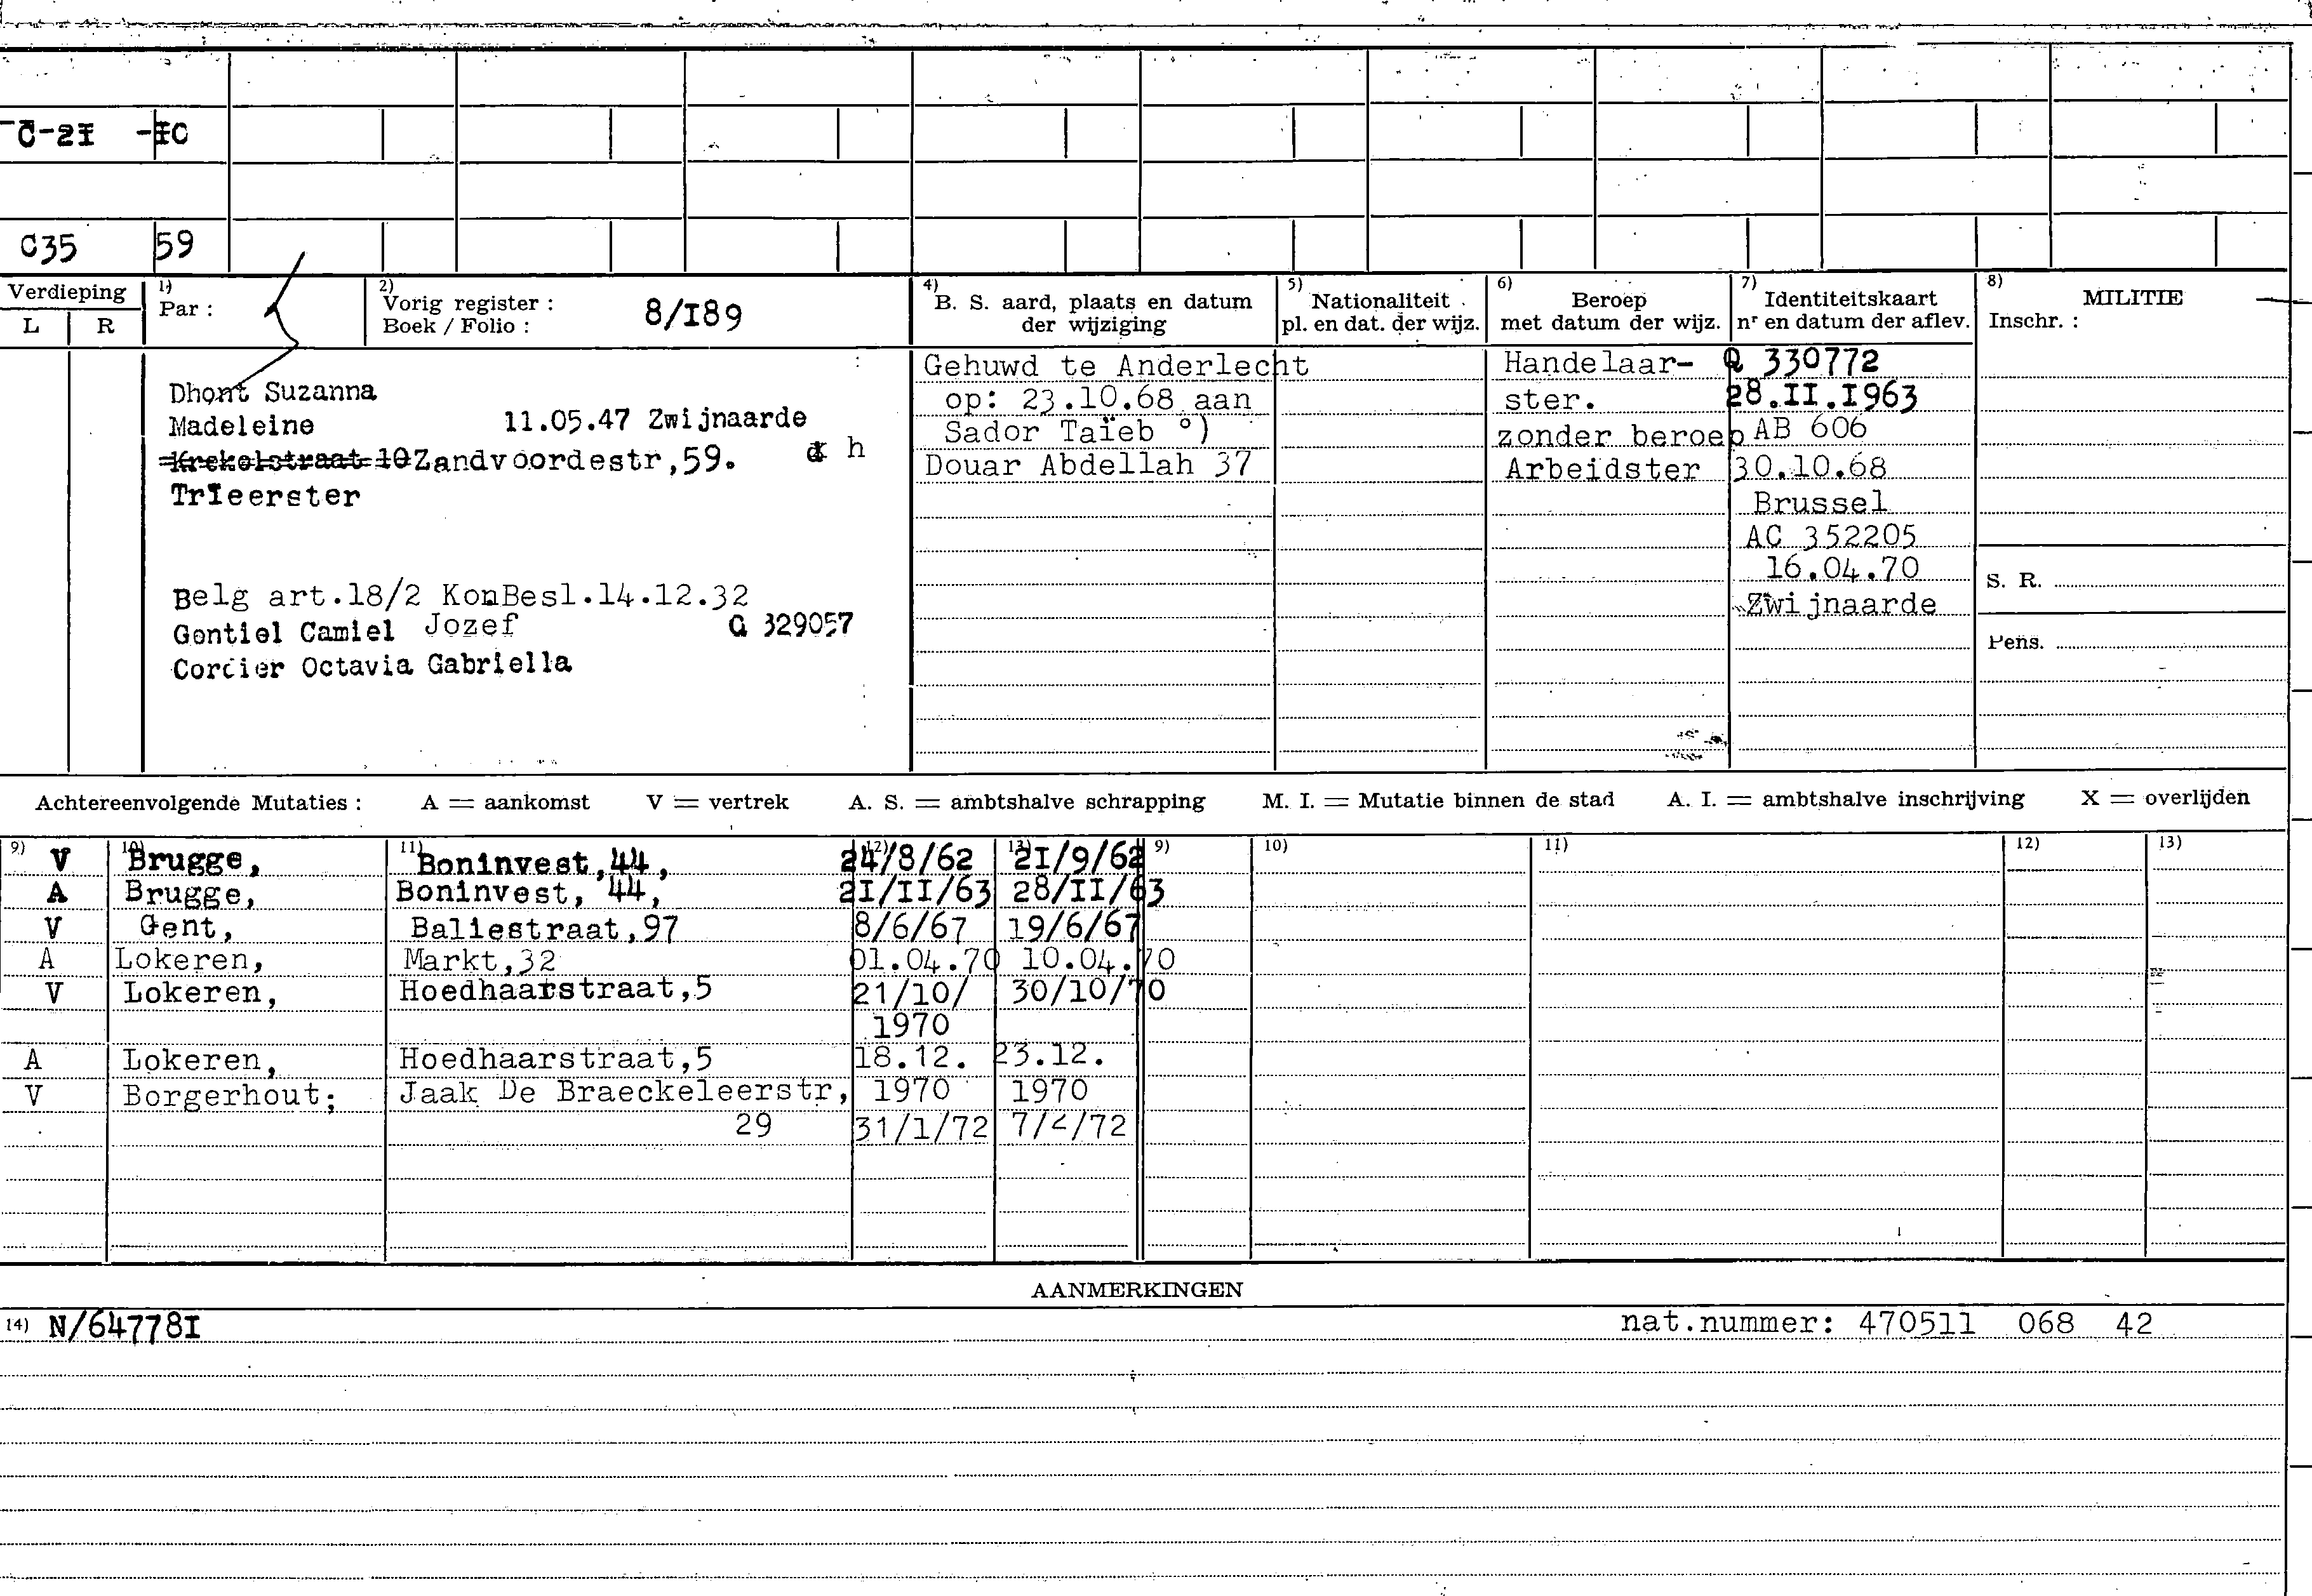 C-2I -IC
C35 59
Verdieping
L R
1) Par :
2) Vorig register :
Boek / Folio : 8/I89
4) B. S. aard, plaats en datum
der wijziging
5) Nationaliteit
pl. en dat. der wijz.
6) Beroep
met datum der wijz.
7) Identiteitskaart
nr en datum der aflev.
8) MILITIE
Inschr. :
Dhont Suzanna
Madeleine 11.05.47 Zwijnaarde
Krekelstraat 10 Zandvoordestr,59. h
TrIeerster
Belg art.18/2 KonBesl.14.12.32
Gentiel Camiel Jozef Q 329057
Cordier Octavia Gabriella
Gehuwd te Anderlecht
op: 23.10.68 aan
Sador Taïeb °)
Douar Abdellah 37
Handelaar-
ster.
zonder beroep
Arbeidster
Q 330772
28.II.I963
AB 606
30.10.68
Brussel
AC 352205
16.04.70
Zwijnaarde
S. R.
Pens.
Achtereenvolgende Mutaties : A = aankomst V = vertrek A. S. = ambtshalve schrapping M. I. = Mutatie binnen de stad A. I. = ambtshalve inschrijving X = overlijden
9) 10) 11) 12) 13) 9) 10) 11) 12) 13)
V Brugge, Boninvest,44, 24/8/62 2I/9/62
A Brugge, Boninvest, 44, 2I/II/63 28/II/63
V Gent, Baliestraat,97 8/6/67 19/6/67
A Lokeren, Markt,32 01.04.70 10.04.70
V Lokeren, Hoedhaarstraat,5 21/10/ 30/10/70
1970
A Lokeren, Hoedhaarstraat,5 18.12. 23.12.
V Borgerhout; Jaak De Braeckeleerstr, 1970 1970
29 31/1/72 7/2/72
AANMERKINGEN
14) N/64778I nat.nummer: 470511 068 42